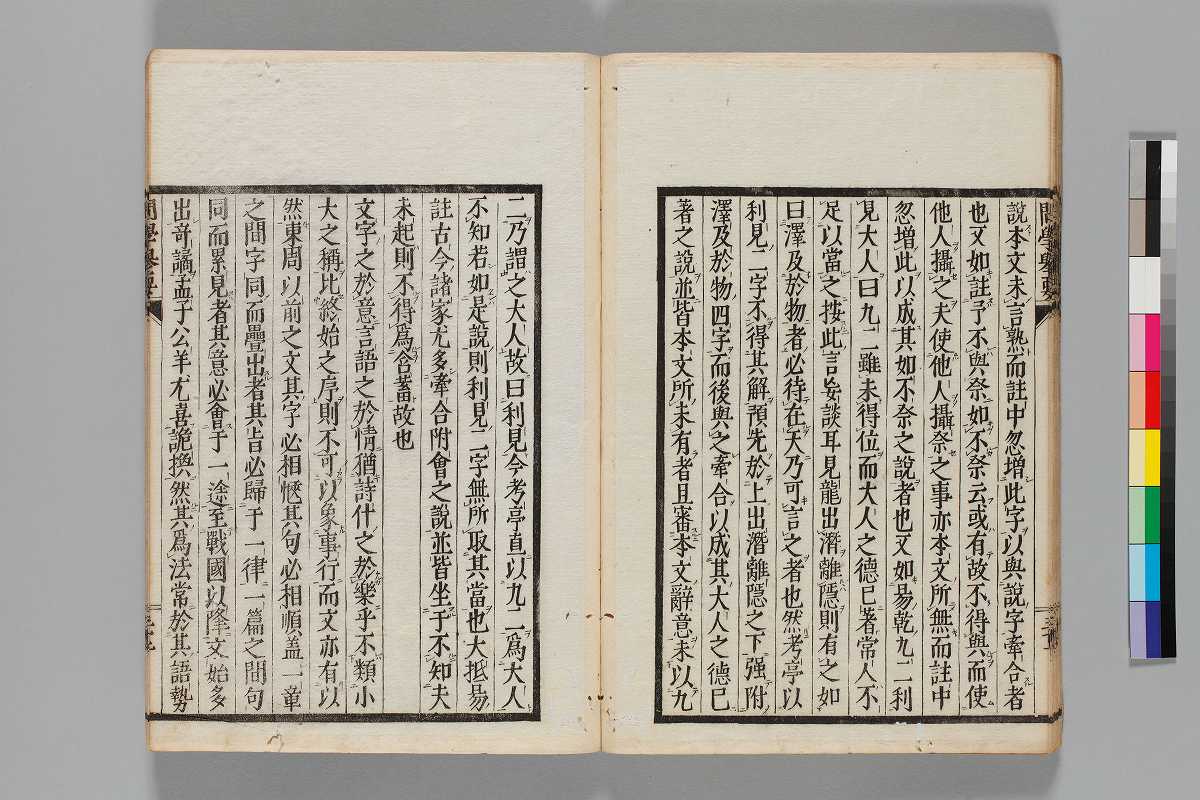 說本文未言熟而註中忽增此字以與說字牽合者
也又如註予不與祭如不祭云或有故不得與而使
他人攝之夫使他人攝祭之事亦本文所無而註中
忽增此以成其如不祭之說者也又如易乾九二利
見大人曰九二雖未得位而大人之德已著常人不
足以當之按此言妄談耳見龍出潛離隱則有之如
曰澤及於物者必待在天乃可言之者也然考亭以
利見二字不得其解預先於上出潛離隱之下强附
澤及於物四字而後與之牽合以成其大人之德已
著之說並皆本文所未有者且審本文辭意未以九
二乃謂之大人故曰利見今考亭直以九二爲大人
不知若如是說則利見二字無所取其當也大抵易
註古今諸家尤多牽合附會之說並皆坐于不知夫
未起則不得爲含蓄故也
文字之於意言語之於情猶詩什之於樂乎不類小
大之稱比終始之序則不可以象事行而文亦有以
然東周以前之文其字必相愜其句必相順蓋一章
之間字同而疊出者其旨必歸于一律一篇之間句
同而累見者其意必會于一途至戰國以降文始多
出奇譎孟子公羊尤喜詭撰然其爲法常於其語勢